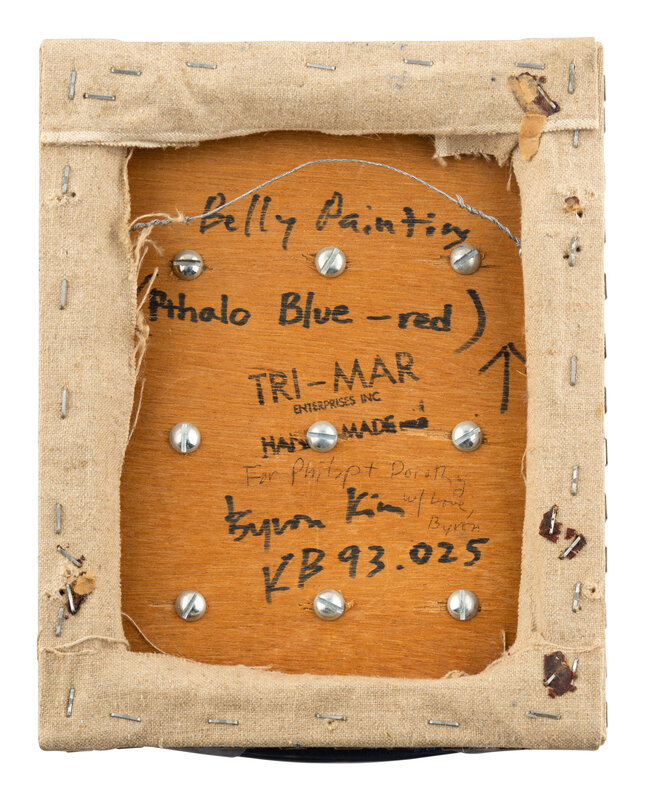 Belly Painting
(Pthalo Blue - red)
TRI-MAR
ENTERPRISES INC
HAND MADE
For Philip + Dorothy
w/ love,
Byron
Byron Kim
KB 93.025